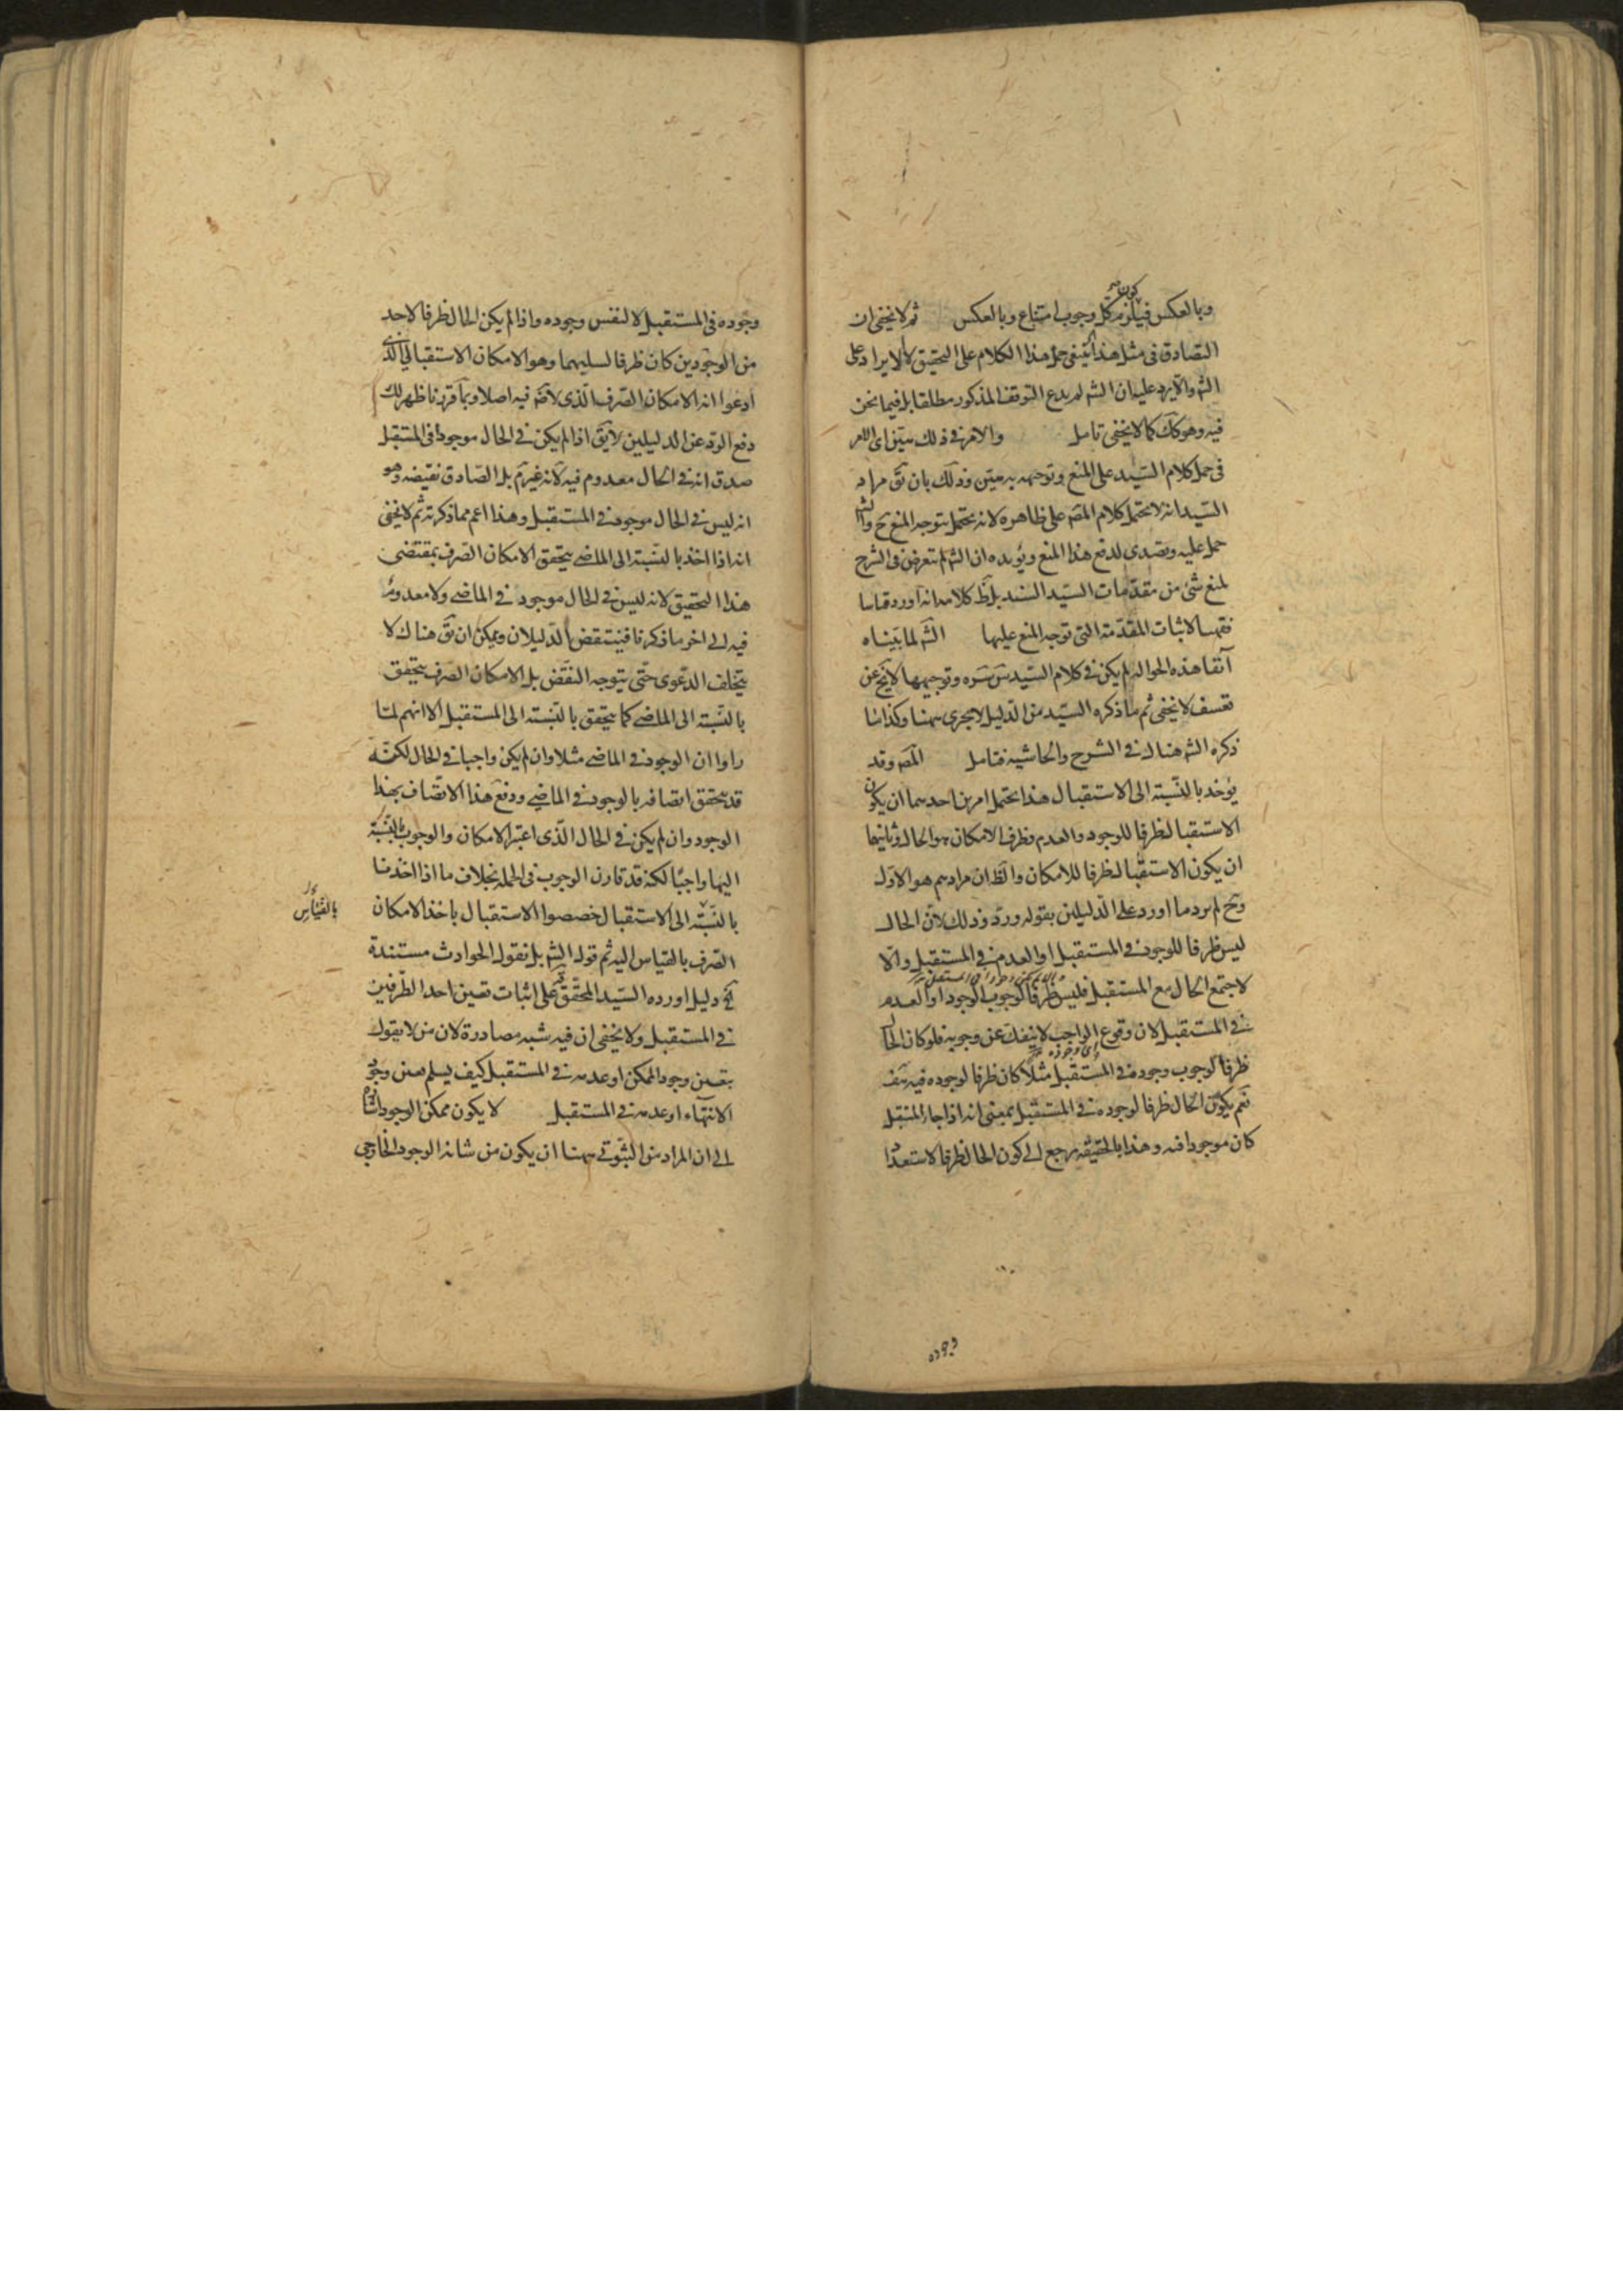 وبالعكس فيلزم كون كل وجوب امتناع وبالعكس ثم لا يخفى ان
التصادق فى مثل هذا يبتنى حمل هذا الكلام على التحقيق لا الايراد على
الش والا يرد عليه ان الش لم يدع التوقف المذكور مطلقا بل فيما نحن
فيه وهو كك كما لا يخفى تامل والامر فى ذلك هين اى الامر
فى حمل كلام السيد على المنع وتوجيهه به هين وذلك بان يق مراد
السيد انه لا يحتمل كلام المص على ظاهره لانه يحتمل بتوجه المنع ح والش
حمل عليه وتصدى لدفع هذا المنع ويؤيده ان الش لم يتعرض فى الشرح
لمنع شئ من مقدمات السيد السند بل ظ كلامه انه اورد قياسا
فقهيا لاثبات المقدمة التى توجه المنع عليها الش لما بيناه
آنفا هذه الحوالة لم يكن فى كلام السيد س سره وتوجيهها لا يخ عن
تعسف لا يخفى ثم ما ذكره السيد من الدليل لا يجرى ههنا وكذا ما
ذكره الش هناك فى الشرح والحاشيه فتامل المص وقد
يؤخذ بالنسبة الى الاستقبال هذا يحتمل امرين احدهما ان يكون
الاستقبال ظرفا للوجود والعدم وظرف الامكان هو الحال وثانيهما
ان يكون الاستقبال ظرفا للامكان والظ ان مرادهم هو الاول
وح لم يرد ما اورد على الدليلين بقوله ورد وذلك لان الحال
ليس ظرفا للوجود فى المستقبل او العدم فى المستقبل والا
لاجتمع الحال مع المستقبل فليس ظرفا لوجوب الوجود او العدم
فى المستقبل لان وقوع الواجب لا ينفك عن وجوبه فلو كان الحال
ظرفا لوجوب وجوده فى المستقبل مثلا كان ظرفا لوجوده فيه هف
نعم يكون الحال ظرفا لوجوده فى المستقبل بمعنى انه اذا جاء المستقبل
كان موجودا فيه وهذا بالحقيقه يرجع الى كون الحال ظرفا لاستعداد
وجوده
وجوده فى المستقبل لا لنفس وجوده واذا لم يكن الحال ظرفا لاحد
من الوجودين كان ظرفا لسلبهما وهو الامكان الاستقبالى الذى
ادعوا انه الامكان الصرف الذى لا ضم فيه اصلا وبما قررنا ظهر لك
دفع الرد عن الدليلين لا يق اذا لم يكن فى الحال موجودا فى المستقبل
صدق انه فى الحال معدوم فيه لانه غير م بل الصادق نقيضه وهو
انه ليس فى الحال موجود فى المستقبل وهذا اعم مما ذكرته ثم لا يخفى
انه اذا اخذ بالنسبة الى الماضى يتحقق الامكان الصرف بمقتضى
هذا التحقيق لانه ليس فى الحال موجود فى الماضى ولا معدوم
فيه الى اخر ما ذكرنا فينتقض الدليلان ويمكن ان يق هناك لا
يتخلف الدعوى حتى يتوجه النقض بل الامكان الصرف يتحقق
بالنسبة الى الماضى كما يتحقق بالنسبة الى المستقبل الا انهم لما
راوا ان الوجود فى الماضى مثلا وان لم يكن واجبا فى الحال لكنه
قد يتحقق اتصافه بالوجود فى الماضى ووقع هذا الاتصاف بهذا
الوجود وان لم يكن فى الحال الذى اعتبر الامكان والوجوب بالنسبة
اليها واجبا لكنه قد قارن الوجوب فى الجملة بخلاف ما اذا اخذنا
بالنسبة الى الاستقبال خصصوا الاستقبال باخذ الامكان
بالقياس
الصرف بالقياس اليه ثم قوله الش بل نقول الحوادث مستندة
الخ دليل اورده السيد المحقق على اثبات تعين احد الطرفين
فى المستقبل ولا يخفى ان فيه شبه مصادرة لان من لا يقول
بتعين وجود الممكن او عدمه فى المستقبل كيف يسلم تعين وجود
الانتهاء او عدمه فى المستقبل لا يكون ممكن الوجود اشارة
الى ان المراد من الثبوتى ههنا ان يكون من شانه الوجود الخارجى